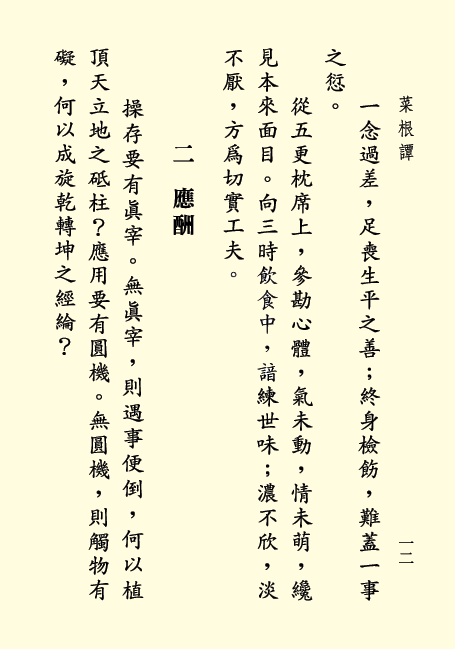 菜根譚
一二
一念過差，足喪生平之善；終身檢飭，難蓋一事
之愆。
從五更枕席上，參勘心體，氣未動，情未萌，纔
見本來面目。向三時飲食中，諳練世味；濃不欣，淡
不厭，方爲切實工夫。
二　應酬
操存要有眞宰。無眞宰，則遇事便倒，何以植
頂天立地之砥柱？應用要有圓機。無圓機，則觸物有
礙，何以成旋乾轉坤之經綸？